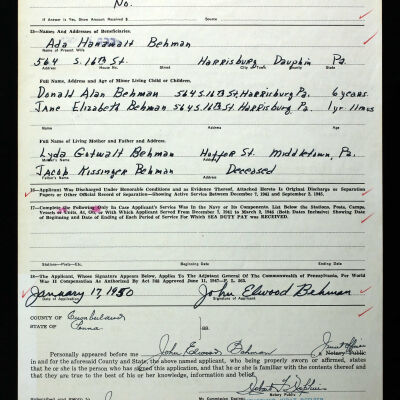 No.
If Answer is Yes, Show Amount Received $ Source
15—Names and Addresses of Beneficiaries.
Ada Hanawalt Behman
Name of Present Wife
564 S. 16th St. Harrisburg Dauphin Pa.
Address House No. Street City or Town County State
Full Name, Address and Age of Minor Living Child or Children.
Donald Alan Behman 564 S. 16th St. Harrisburg Pa. 6 years
Jane Elizabeth Behman 564 S. 16th St. Harrisburg Pa. 1 yr. 11 mos
Name Address Age
Full Name of Living Mother and Father and Address.
Lyda Gotwalt Behman Hoffer St. Middletown, Pa.
Mother's Name Address
Jacob Kissinger Behman Deceased
Father's Name Address
16—Applicant Was Discharged Under Honorable Conditions and as Evidence Thereof, Attached Hereto is Original Discharge or Separation
Papers or Other Official Record of Separation—Showing Active Service Between December 7, 1941 and September 2, 1945.
17—Complete the Following Only In Case Applicant's Service Was in the Navy or its Components. List Below the Stations, Posts, Camps,
Vessels or Units, At, On, or With Which Applicant Served From December 7, 1941 to March 2, 1946 (Both Dates Inclusive) Showing Date
of Beginning and Date of Ending of Each Period of Service For Which SEA DUTY PAY was RECEIVED.
Stations—Posts—Etc. Beginning Date Ending Date
18—The Applicant, Whose Signature Appears Below, Applies To The Adjutant General Of The Commonwealth of Pennsylvania, For World
War II Compensation As Authorized By Act 188 Approved June 11, 1947—P. L. 565.
January 17, 1950 John Elwood Behman
Date of Application Signature of Applicant
COUNTY OF Cumberland
STATE OF Penna ss.
Personally appeared before me John Elwood Behman
Notary Public
in and for the aforesaid County and State, the above named applicant, who being properly sworn or affirmed, states
that he or she is the person who has signed this application, and that he or she is familiar with the contents thereof and
that they are true to the best of his or her knowledge, information and belief.
Notary Public